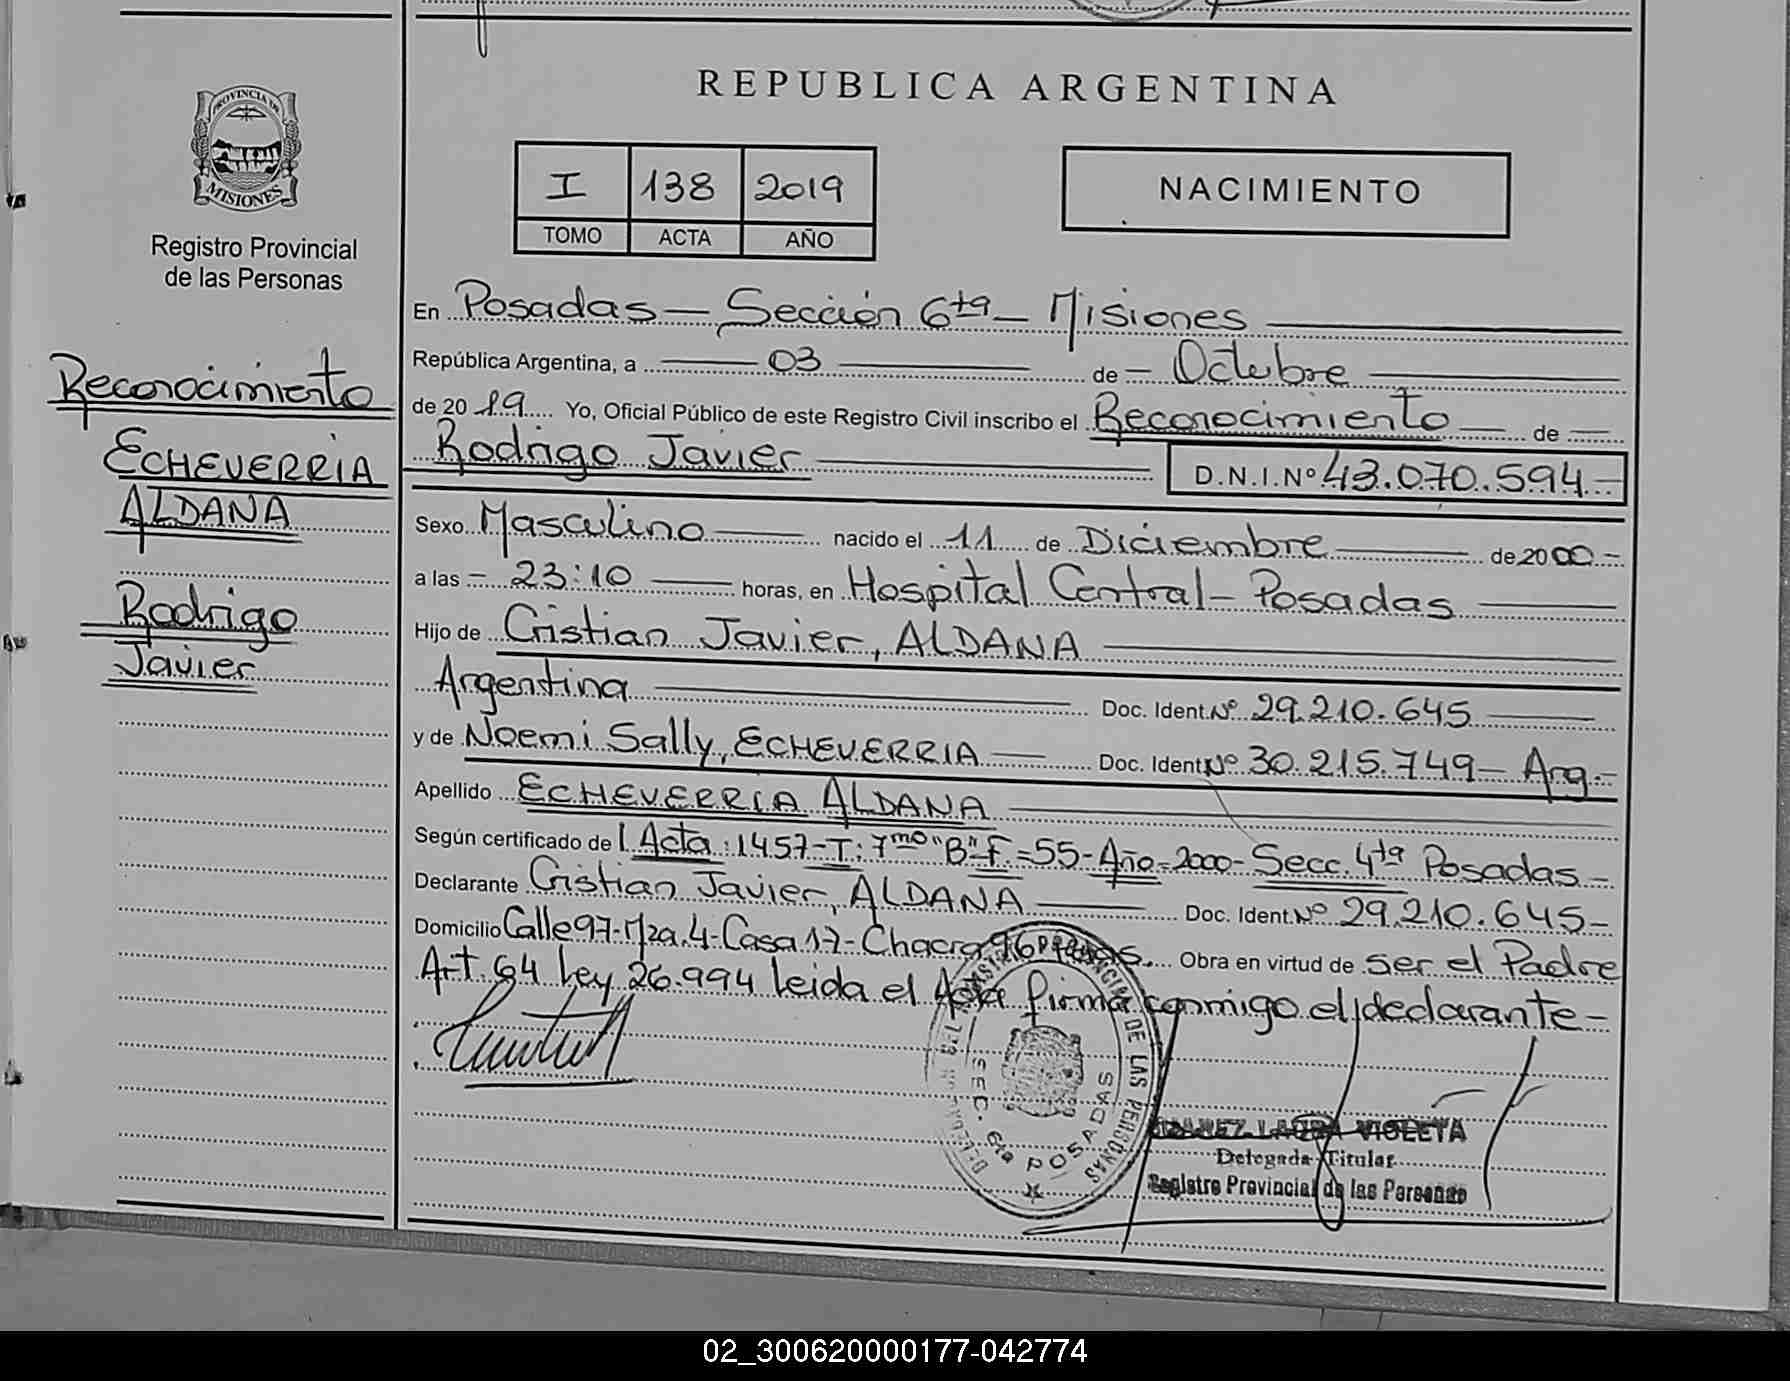 PROVINCIA DE
MISIONES
Registro Provincial
de las Personas
Reconocimiento
ECHEVERRIA
ALDANA
Rodrigo
Javier
REPUBLICA ARGENTINA
I 138 2019
TOMO ACTA AÑO
NACIMIENTO
En Posadas - Sección 6ta - Misiones
República Argentina, a 03 de Octubre
de 2019 Yo, Oficial Público de este Registro Civil inscribo el Reconocimiento de
Rodrigo Javier D.N.I.Nº 43.070.594
Sexo Masculino nacido el 11 de Diciembre de 2000
a las 23:10 horas, en Hospital Central - Posadas
Hijo de Cristian Javier, ALDANA
Argentina Doc. Ident. Nº 29.210.645
y de Noemi Sally, ECHEVERRIA Doc. Ident Nº 30.215.749 - Arg.-
Apellido ECHEVERRIA ALDANA
Según certificado de Acta: 1457-T: 7mo "B" F=55-Año=2000-Secc. 4ta Posadas
Declarante Cristian Javier, ALDANA Doc. Ident. Nº 29.210.645-
Domicilio Calle 97-Mza.4-Casa 17-Chacra 96 Obra en virtud de ser el Padre
Art. 64 Ley 26.994 leida el Acta firma conmigo el declarante-
PROVINCIAL DE LAS PERSONAS
SEC. 6ta POSADAS
LAURA VIOLETA
Delegada Titular
Registro Provincial de las Personas
02_300620000177-042774